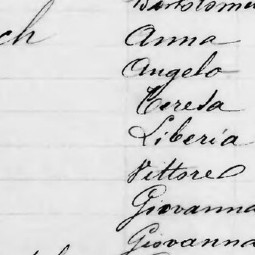 Bartolomeo
ch Anna
Angelo
Teresa
Liberia
Vittore
Giovanna
Giovanna